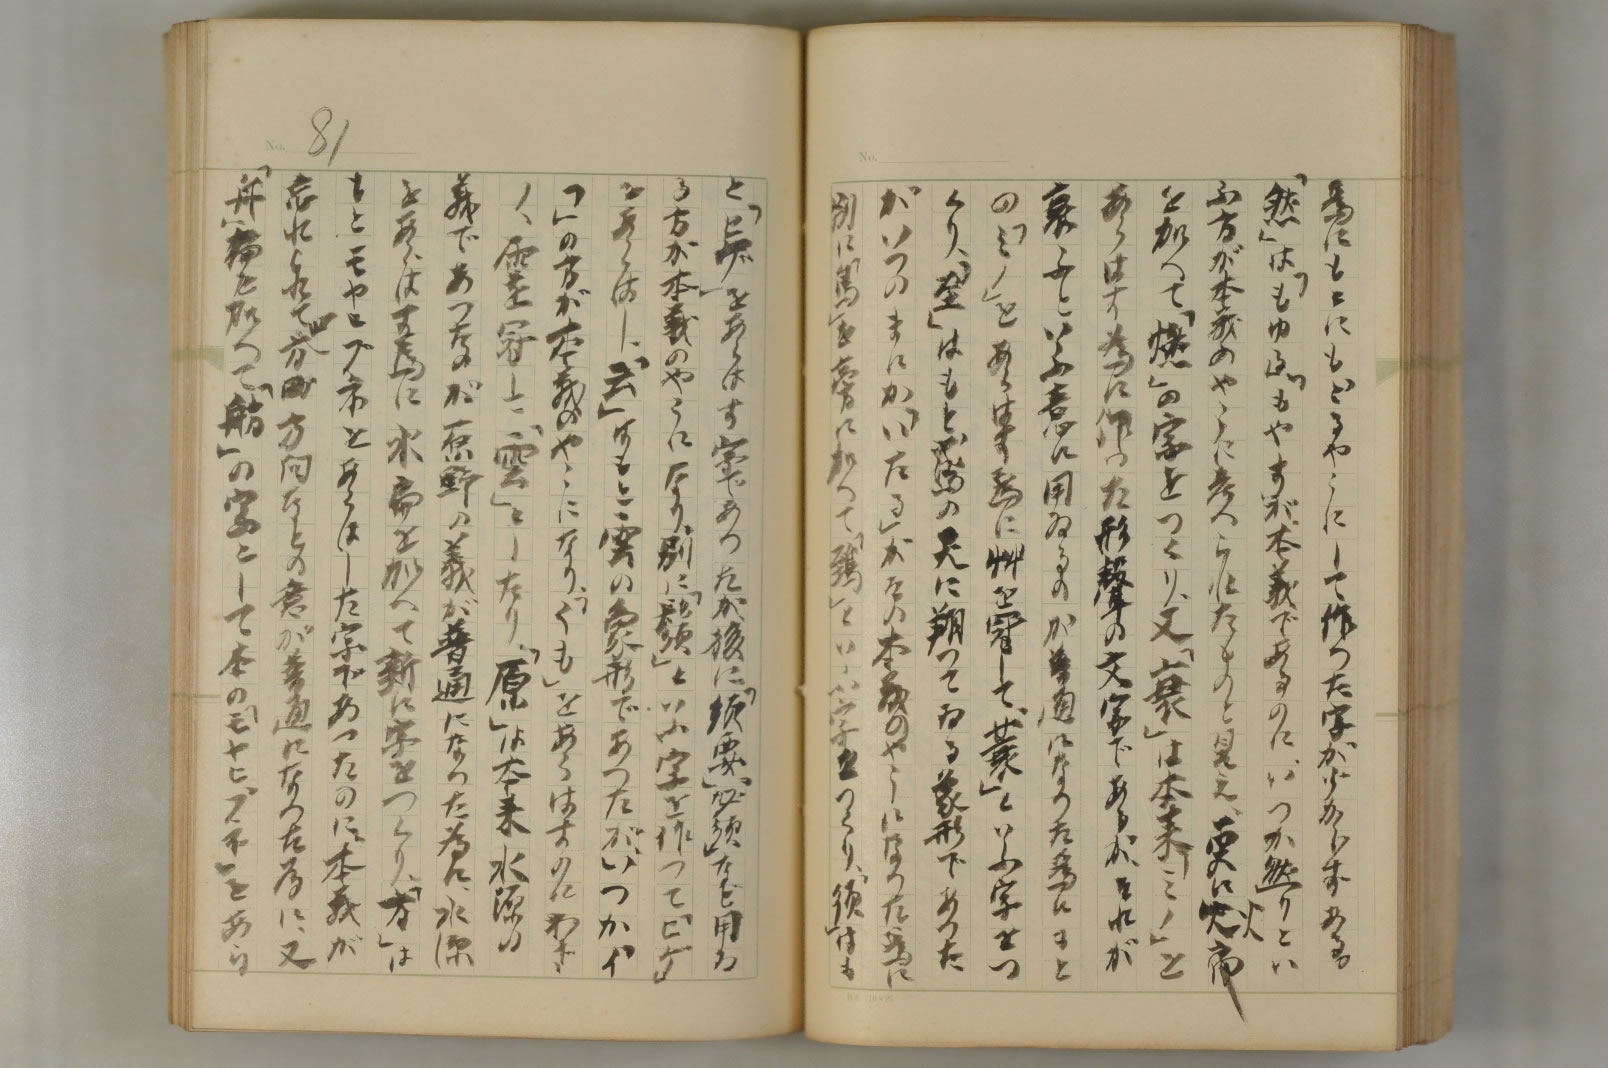 為にもとにもどるやうにして作つた字が少からずある
「然」は「もゆる」「もやす」が本義であるのに、いつか然りとい
ふ方が本義のやうに考へられたものと見え、更に火扁
を加へて「燃」の字をつくり、又「衰」は本来「ミノ」を
あらはす為に作つた形聲の文字であるが、それが
衰ふといふ意に用ゐるのが普通になつた為にもと
の「ミノ」をあらはす為に艸を冠して、「蓑」といふ字をつ
くり、「　」はもと　の天に翔つてゐる象形であつた
がいつのまにか「いたる」がその本義のやうになつた為に
別に「　」を　に加へて、「　」といふ字をつくり、「須」はも
No. 81
と「　」をあらはす字であつたが後に「須要」「必須」など用ゐ
る方が本義のやうになり、別に「鬚」といふ字を作つて「ヒゲ」
をあらはし、「云」はもと雲の象形であつたが、いつかイ
フ」の方が本義のやうになり、「くも」をあらはすのにわざ
〱雨を冠して「雲」としたり、「原」は本来水源の
義であつたのが原野の義が普通になつた為に、水源
をあらはす為に水扁を加へて新に字をつくり、「方」は
もとモヤヒブネをあらはした字であつたのに、本義が
忘れられて四方方向などの意が普通になつた為に、又
「舟」扁を加へて「舫」の字として本の「モヤヒブネ」をあらは